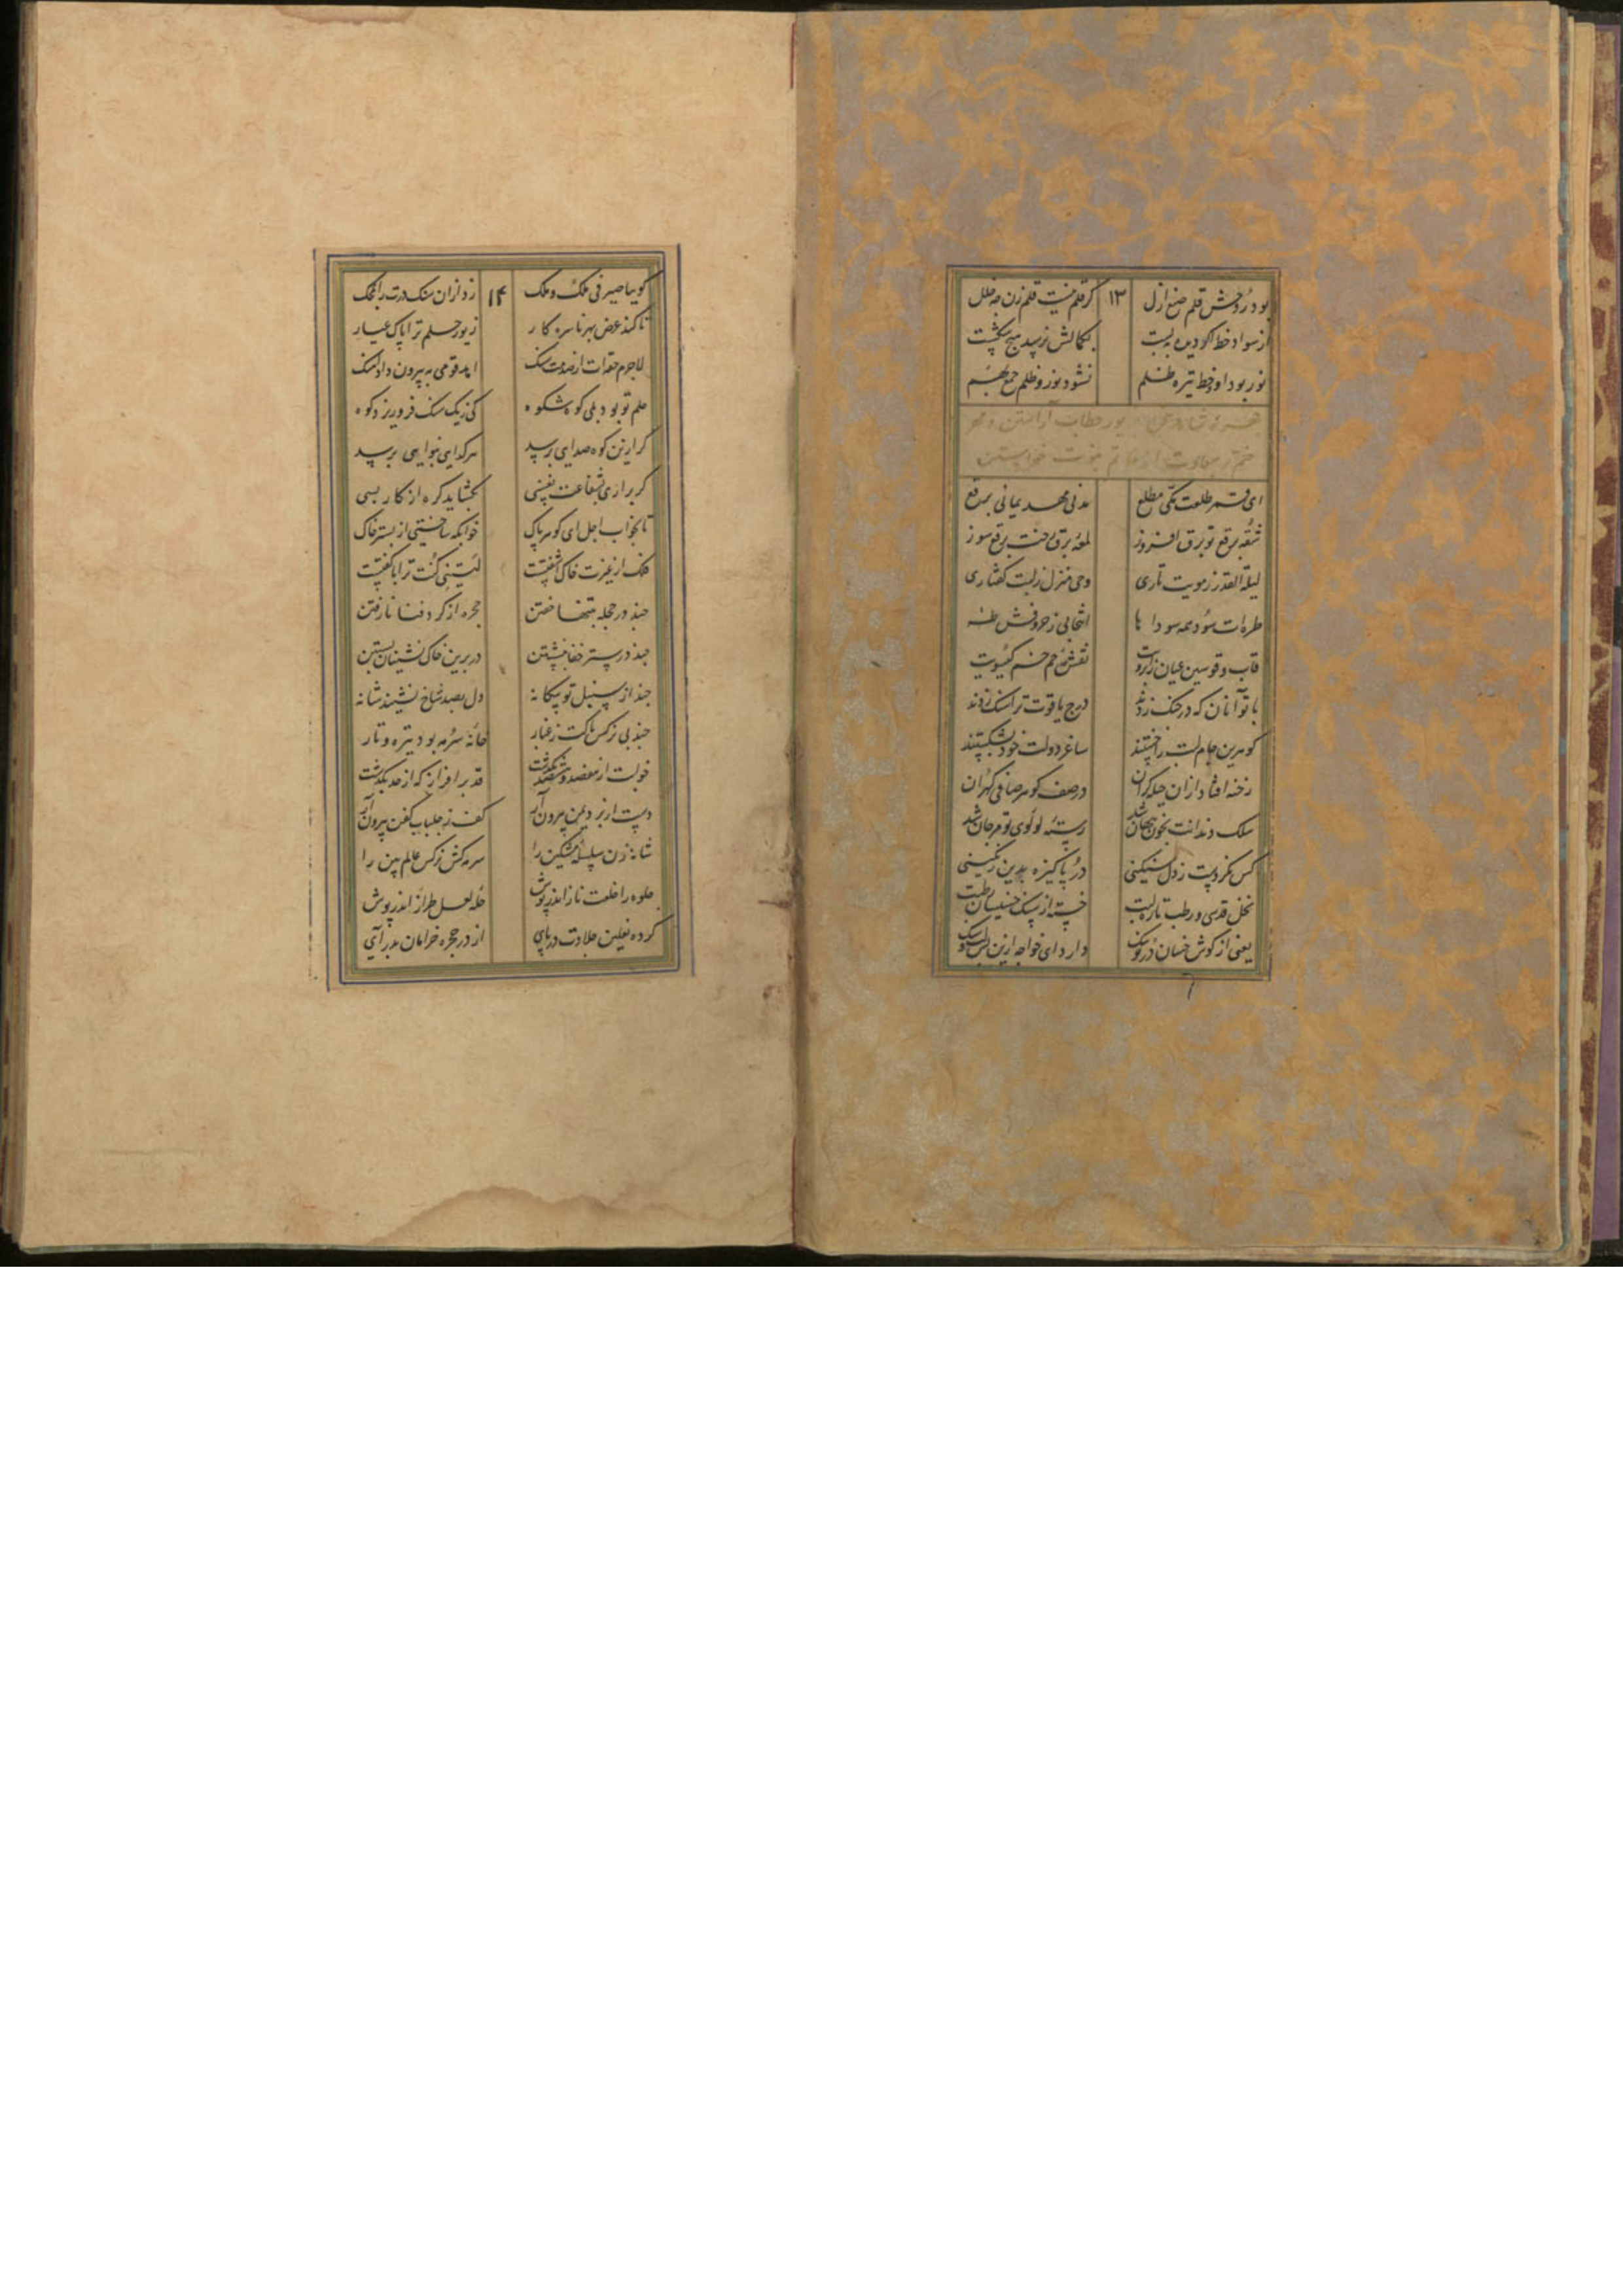 بود ز دوحش قلم صنع ازل ۱۳ گر قلم نیست قلم زن چه خلل
از سواد خط اگر دیده ببست بکمالش نرسد هیچ شکست
نور بود او و خط تیره ظلم نشود نور و ظلم جمع بهم
خطاب آراستن و مهر
ختم نبوت خواستن
ای قمر طلعت مکی مطلع مدنی مهد یمانی برقع
شقه برقع تو برق افروز لمعه برق رخت برقع سوز
لیلة القدر ز مویت تاری وحی منزل ز لبت گفتاری
طره‌ات سود همه سودا ها انتخابی ز حروفش طه
قاب و قوسین عیان ز ابرویت نقش حم خم گیسویت
با تو آنان که در جنگ زدند درج یاقوت ترا سنگ زدند
گوهرین جام لبت را خستند ساغر دولت خود بشکستند
رخنه افتاد از آن حیله گران در صف گوهر صافی گهران
سلک دندانت بخون پنهان شد رسته لولوی تو مرجان شد
کس نکردست ز دل سنگینی در پاکیزه بدین رنگینی
نخل قدسی و رطب تازه لبت خسته از سنگ خسیسان رطبت
یعنی از گوش خسان در تو سنگ دارد ای خواجه ازین
گوییا صیرفی ملک و ملک ۱۴ زد از آن سنگ درت را بمحک
تا کند عرض بهر ناسره کار زیور حلم ترا پاک عیار
لاجرم حقه‌ات از صدمت سنگ اهد قومی به بیرون داد آهنگ
حلم تو بود بلی کوه شکوه کی ز یک سنگ فرو ریزد کوه
گر ازین کوه صدایی برسد هر گدایی بنوایی برسد
گر برآری بشفاعت نفسی بگشاید گره از کار بسی
تا بخواب اجل ای گوهر پاک خوابگه ساختی از بستر خاک
فلک از غیرت خاک آشفتست لیتنی کنت ترابا گفتست
چند در حجله تنها خفتن حجره از گرد فنا نا رفتن
چند در ستر خفا بنشستن در برین خاک نشینان بستن
چند از سنبل تو بیگانه دل بصد شاخ نشیند شانه
چند بی نرگس پاکت ز غبار خانه سرمه بود تیره و تار
خوابت از هفصد و هشتصد بگذشت قد برافراز که از حد بگذشت
دست از برد یمن بیرون آر کف ز جلباب کفن بیرون آر
شانه زن سلسله مشکین را سرمه کش نرگس عالم بین را
جلوه را خلعت ناز اندر پوش حله لعل طراز اندر پوش
کرده نعلین جلادت در پای از در حجره خرامان بدر آی